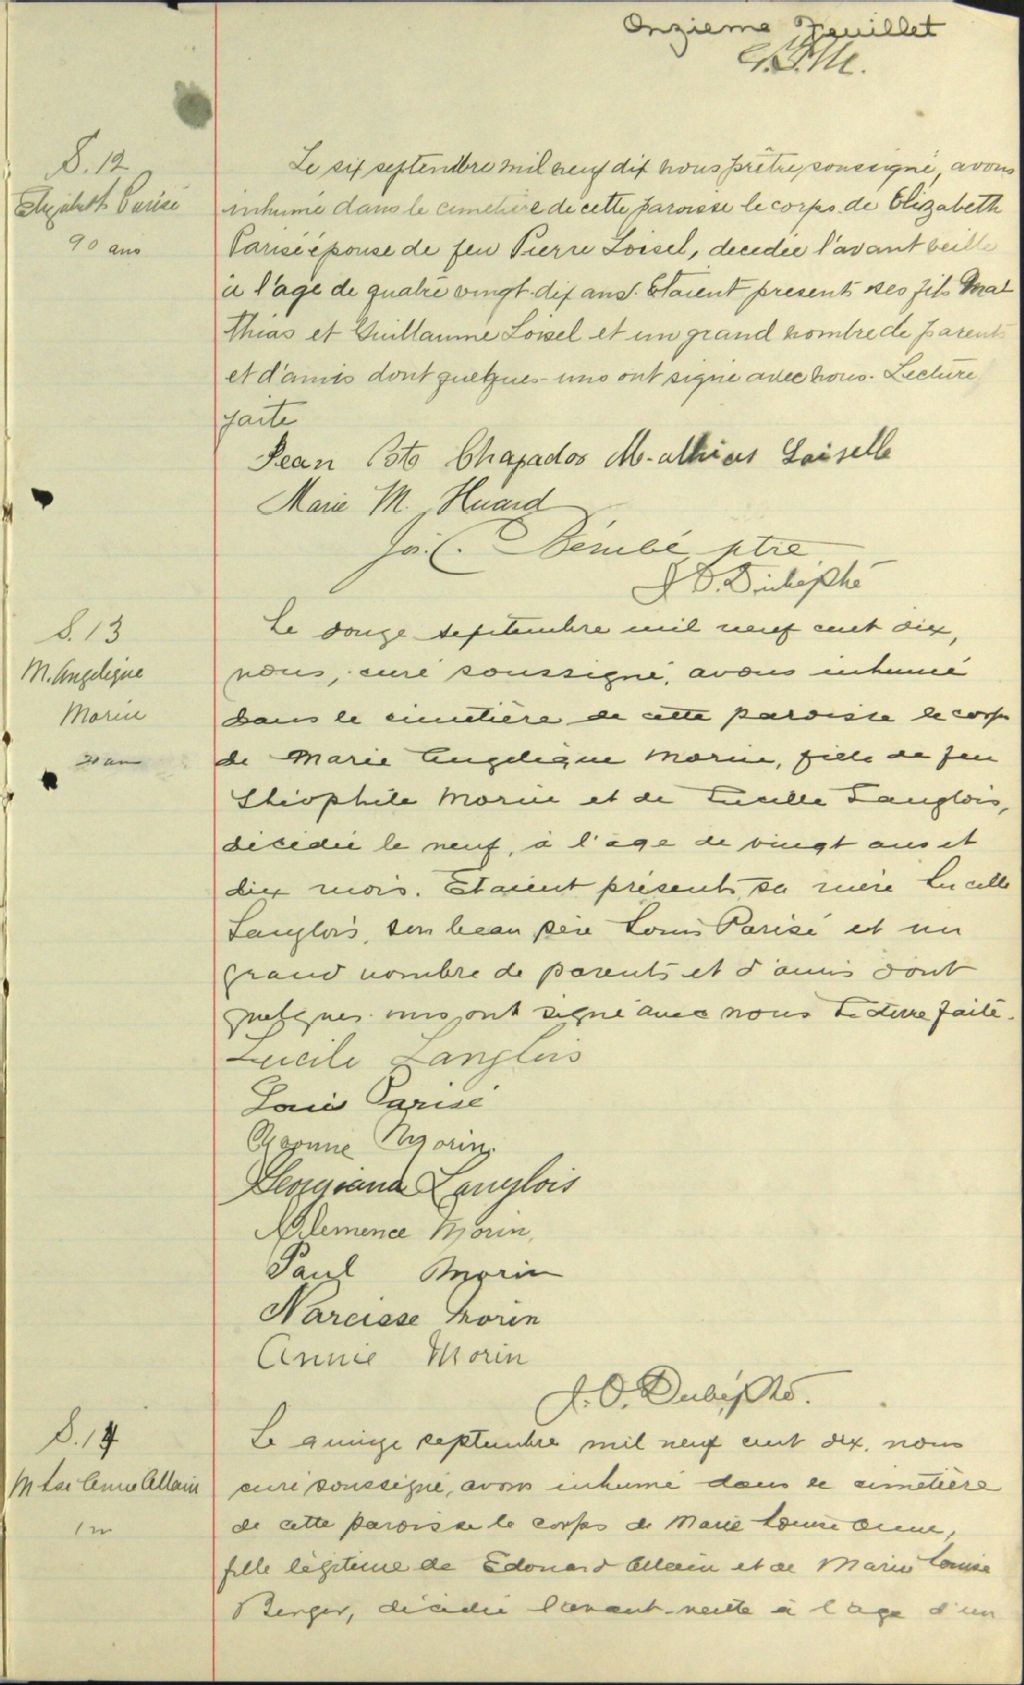 Onzieme Feuillet
S. 12
Elizabeth Parisé
90 ans
Le six septembre mil neuf dix nous prêtre soussigné, avons
inhumé dans le cimetière de cette paroisse le corps de Elizabeth
Parisé épouse de feu Pierre Loisel, decedée l'avant veille
à l'age de quatre vingt-dix ans. Etaient presents ses fils Mat
thias et Guillaume Loisel et un grand nombre de parents
et d'amis dont quelques-uns ont signé avec nous. Lecture
faite
Jean Bte Chapados Mathias Loiselle
Marie M. Huard
Jos. C. Bérubé ptre
J. O. Dubé Ptre
S. 13
M. Angelique
Morin
20 ans
Le douze septembre mil neuf cent dix,
nous, curé soussigné, avons inhumé
dans le cimetière de cette paroisse le corps
de Marie Angelique Morin, fille de feu
Théophile Morin et de Lucille Langlois,
décédée le neuf, à l'age de vingt ans et
dix mois. Etaient présents sa mère Lucille
Langlois, son beau père Louis Parisé et un
grand nombre de parents et d'amis dont
quelques uns ont signé avec nous Lecture faite.
Lucile Langlois
Louis Parisé
Yvonne Morin.
Georgiana Langlois
Clemence Morin,
Paul Morin
Narcisse Morin
Annie Morin
J. O. Dubé Ptre.
S. 14
M Lse Anne Allain
1 m
Le quinze septembre mil neuf cent dix, nous
curé soussigné, avons inhumé dans le cimetière
de cette paroisse le corps de Marie Louise Anne,
fille légitime de Edouard Allain et de Marie Louise
Berger, décédée l'avant-veille à l'age d'un